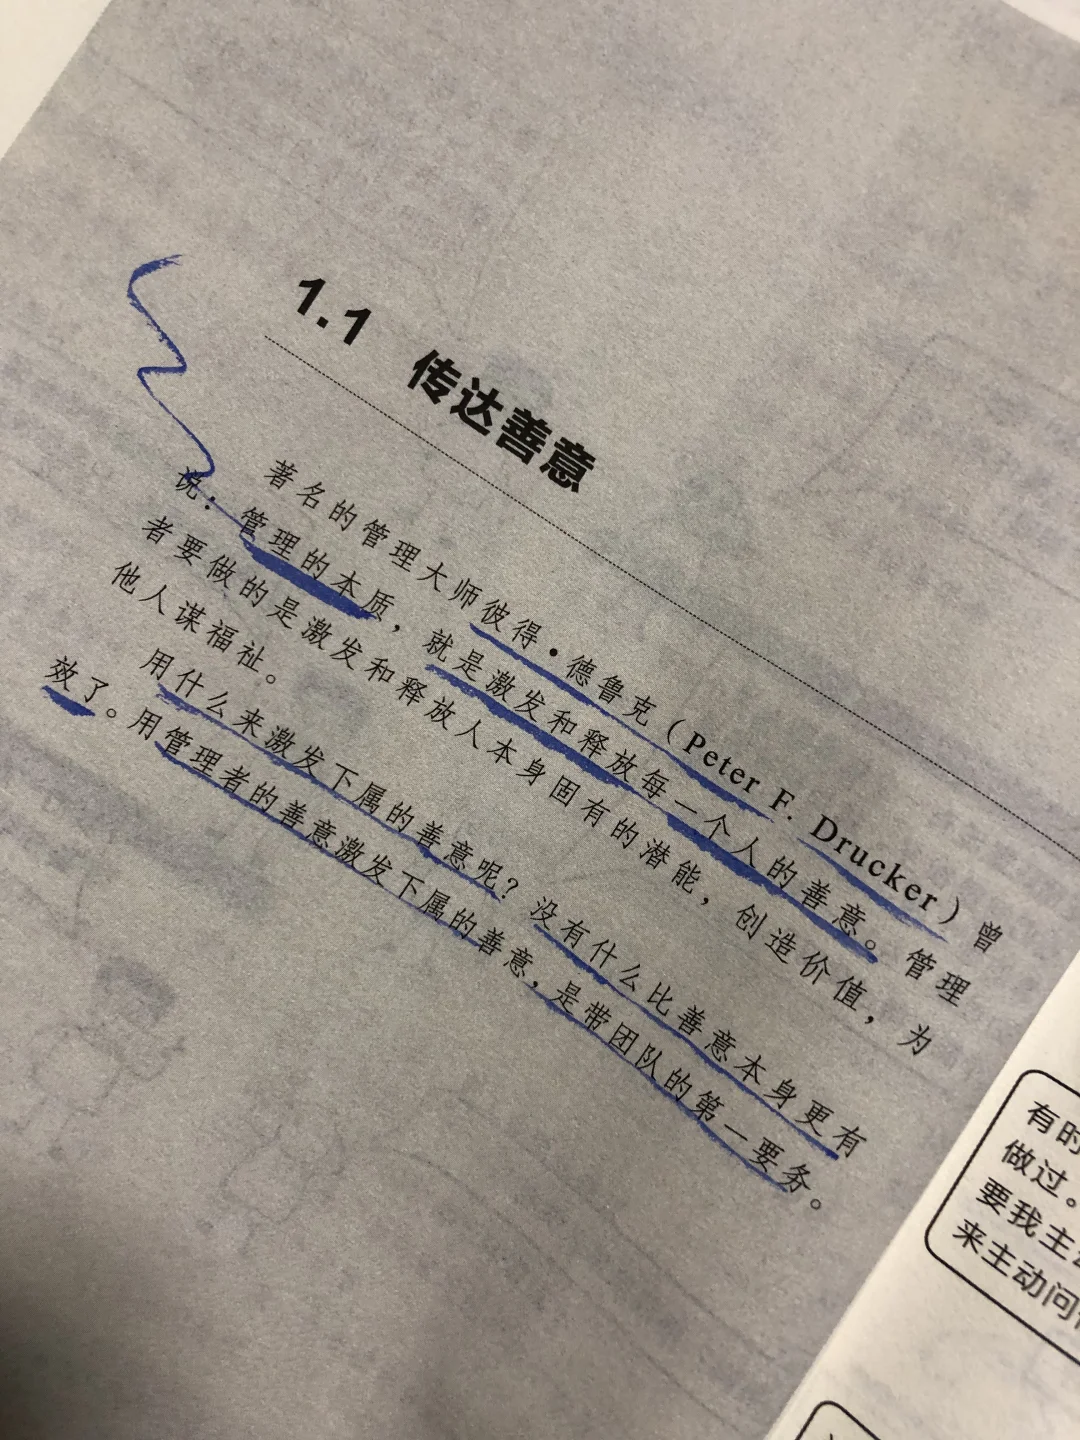 1.1 传达善意
著名的管理大师彼得·德鲁克（Peter F. Drucker）曾
说：管理的本质，就是激发和释放每一个人的善意。管理
者要做的是激发和释放人本身固有的潜能，创造价值，为
他人谋福祉。
用什么来激发下属的善意呢？没有什么比善意本身更有
效了。用管理者的善意激发下属的善意，是带团队的第一要务。
有时
做过。
要我主
来主动问